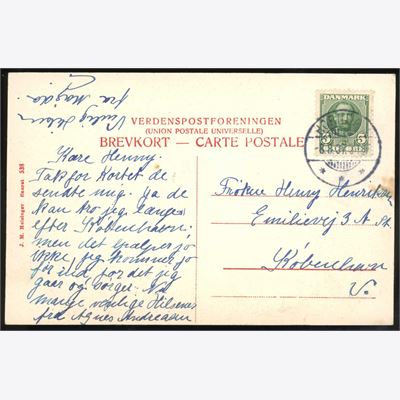 Venlig Hilsen
fra Magda.
VERDENSPOSTFORENINGEN
(UNION POSTALE UNIVERSELLE)
BREVKORT — CARTE POSTALE
DANMARK
5 5
J. M. Neisinger eneret 535
Kære Henny.
Tak for Kortet de
sendte mig. ja de
kan tro jeg længes
efter København:
men det hjælper jo
ikke, jeg kommer jo
for ind for det jeg
gaar og Nu
mange venlige Hilsener
fra Agnes Andreasen
Frøken Henny Henriksen
Emilievej 3 A. St.
København
V.